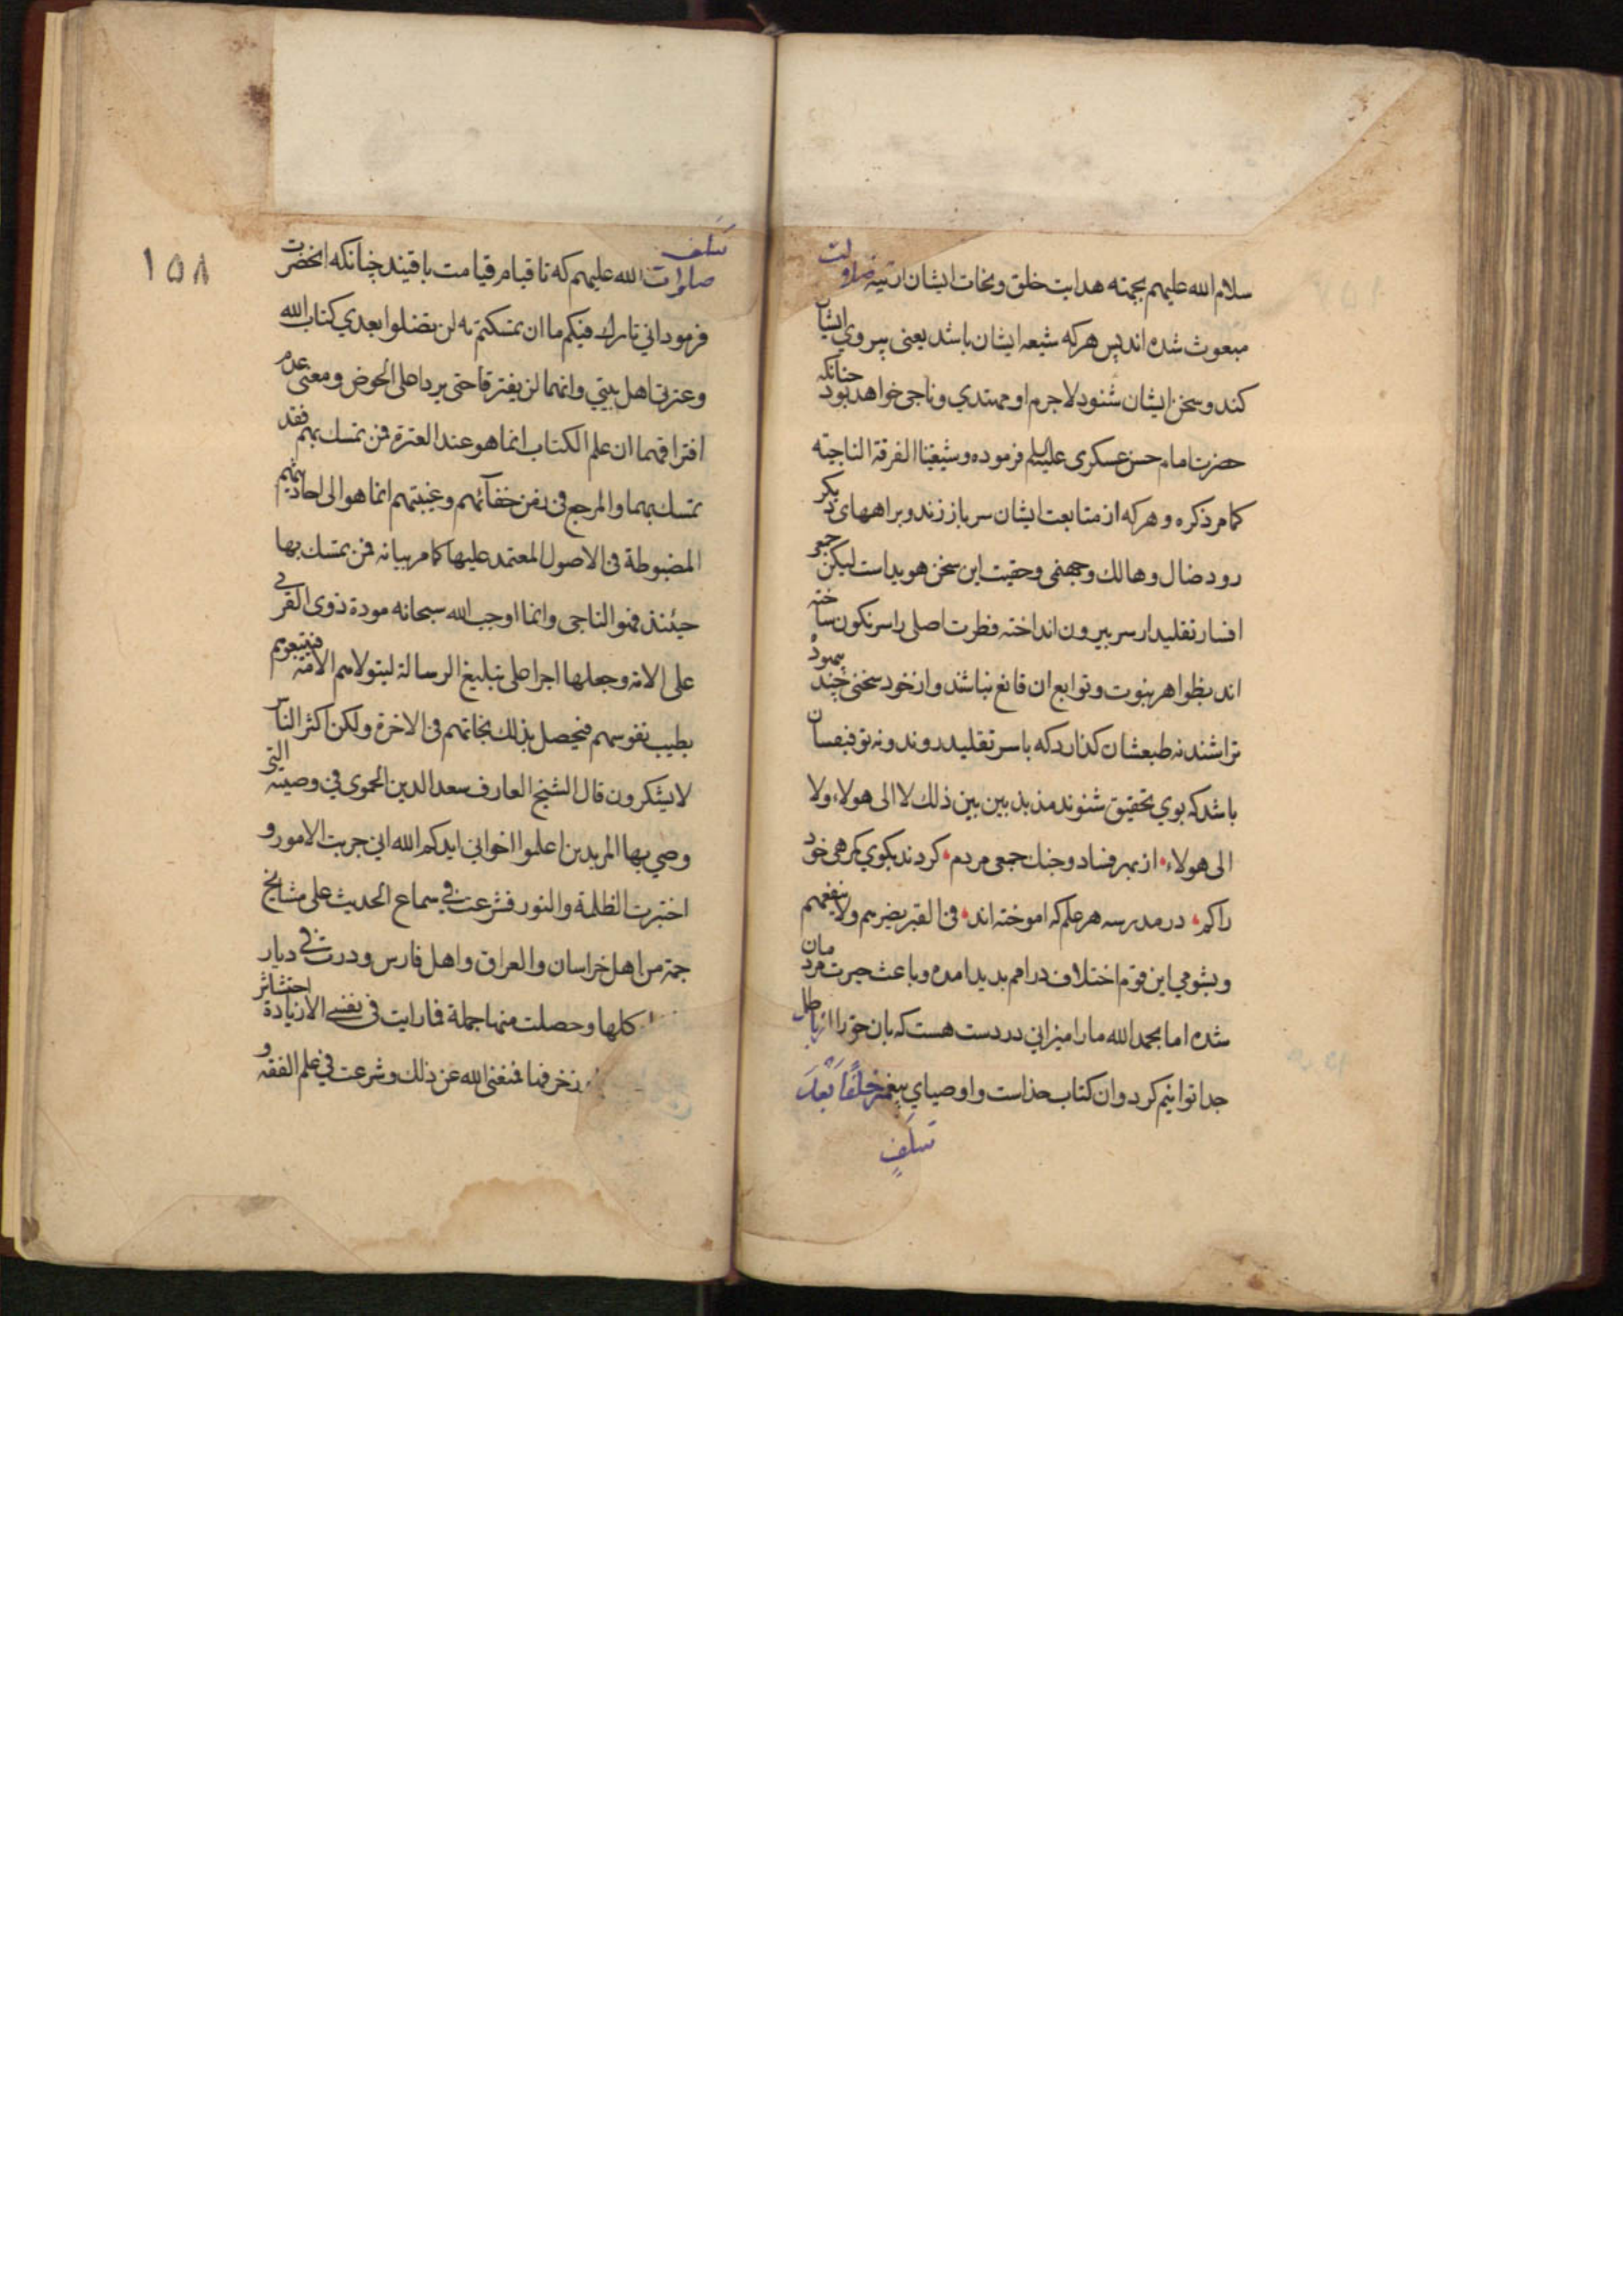 سلام الله علیهم بجهته هدایت خلق و نجات ایشان از تیه ضلالت
مبعوث شده اند پس هر که شیعه ایشان باشد یعنی پیروی ایشان
کند و سخن ایشان شنود لاجرم او مهتدی و ناجی خواهد بود چنانکه
حضرت امام حسن عسکری علیه السلم فرموده و شیعتنا الفرقة الناجیة
کما مر ذکره و هر که از متابعت ایشان سر باز زند و براههای دیکر
رود ضال و هالک و جهنمی و حقیت این سخن هویداست لیکن جمعی
افسار تقلید از سر بیرون انداخته فطرت اصلی را سرنکون ساخته
اند بظواهر نبوت و توابع ان قانع نباشند و از خود سخنی چند بیهوده
تراشند نه طبعشان کذارد که باسر تقلید روند و نه توفیقشان
باشد که بوی تحقیق شنوند مذبذبین بین ذلک لا الی هولاء ولا
الی هولاء از بهر فساد و جنک جمعی مردم کردند بکوی کمرهی خود
را کم در مدرسه هر علم که اموخته اند فی القبر یضرهم ولا ینفعهم
و بشومی این قوم اختلاف در امم بدید امده و باعث حیرت مردمان
شده اما بحمد الله ما را میزانی در دست هست که بان حق را از باطل
جدا توانیم کرد و ان کتاب خداست و اوصیای پیغمبر خلفًا بَعْدَ
سَلَفٍ
۱۵۸
سَلَفٍ
صلوات الله علیهم که تا قیام قیامت باقیند چنانکه انحضرت
فرمود انی تارک فیکم ما ان تمسکتم به لن تضلوا بعدی کتاب الله
و عترتی اهل بیتی و انهما لن یفترقا حتی یردا علی الحوض و معنی عدم
افتراقهما ان علم الکتاب انما هو عند العترة فمن تمسک بهم فقد
تمسک بهما و المرجع فی زمن خفآئهم و غیبتهم انما هو الی احادیثهم
المضبوطة فی الاصول المعتمد علیها کما مر بیانه فمن تمسک بها
حینئذ فهو الناجی و انما اوجب الله سبحانه مودة ذوی القربی
علی الامة و جعلها اجرا علی تبلیغ الرسالة لیتولاهم الامة فیتبعوهم
بطیب نفوسهم فیحصل بذلک نجاتهم فی الاخرة ولکن اکثر الناس
لا یشکرون قال الشیخ العارف سعد الدین الحموی فی وصیته التی
وصی بها المریدین اعلموا اخوانی ایدکم الله انی جربت الامور و
اختبرت الظلمة و النور فشرعت فی سماع الحدیث علی مشایخ
جمة من اهل خراسان و العراق و اهل فارس و درت فی دیار
کلها و حصلت منها جملة فما رایت فی نفسی الا زیادة
زخرفها فمنعنی الله عن ذلک و شرعت فی علم الفقه و